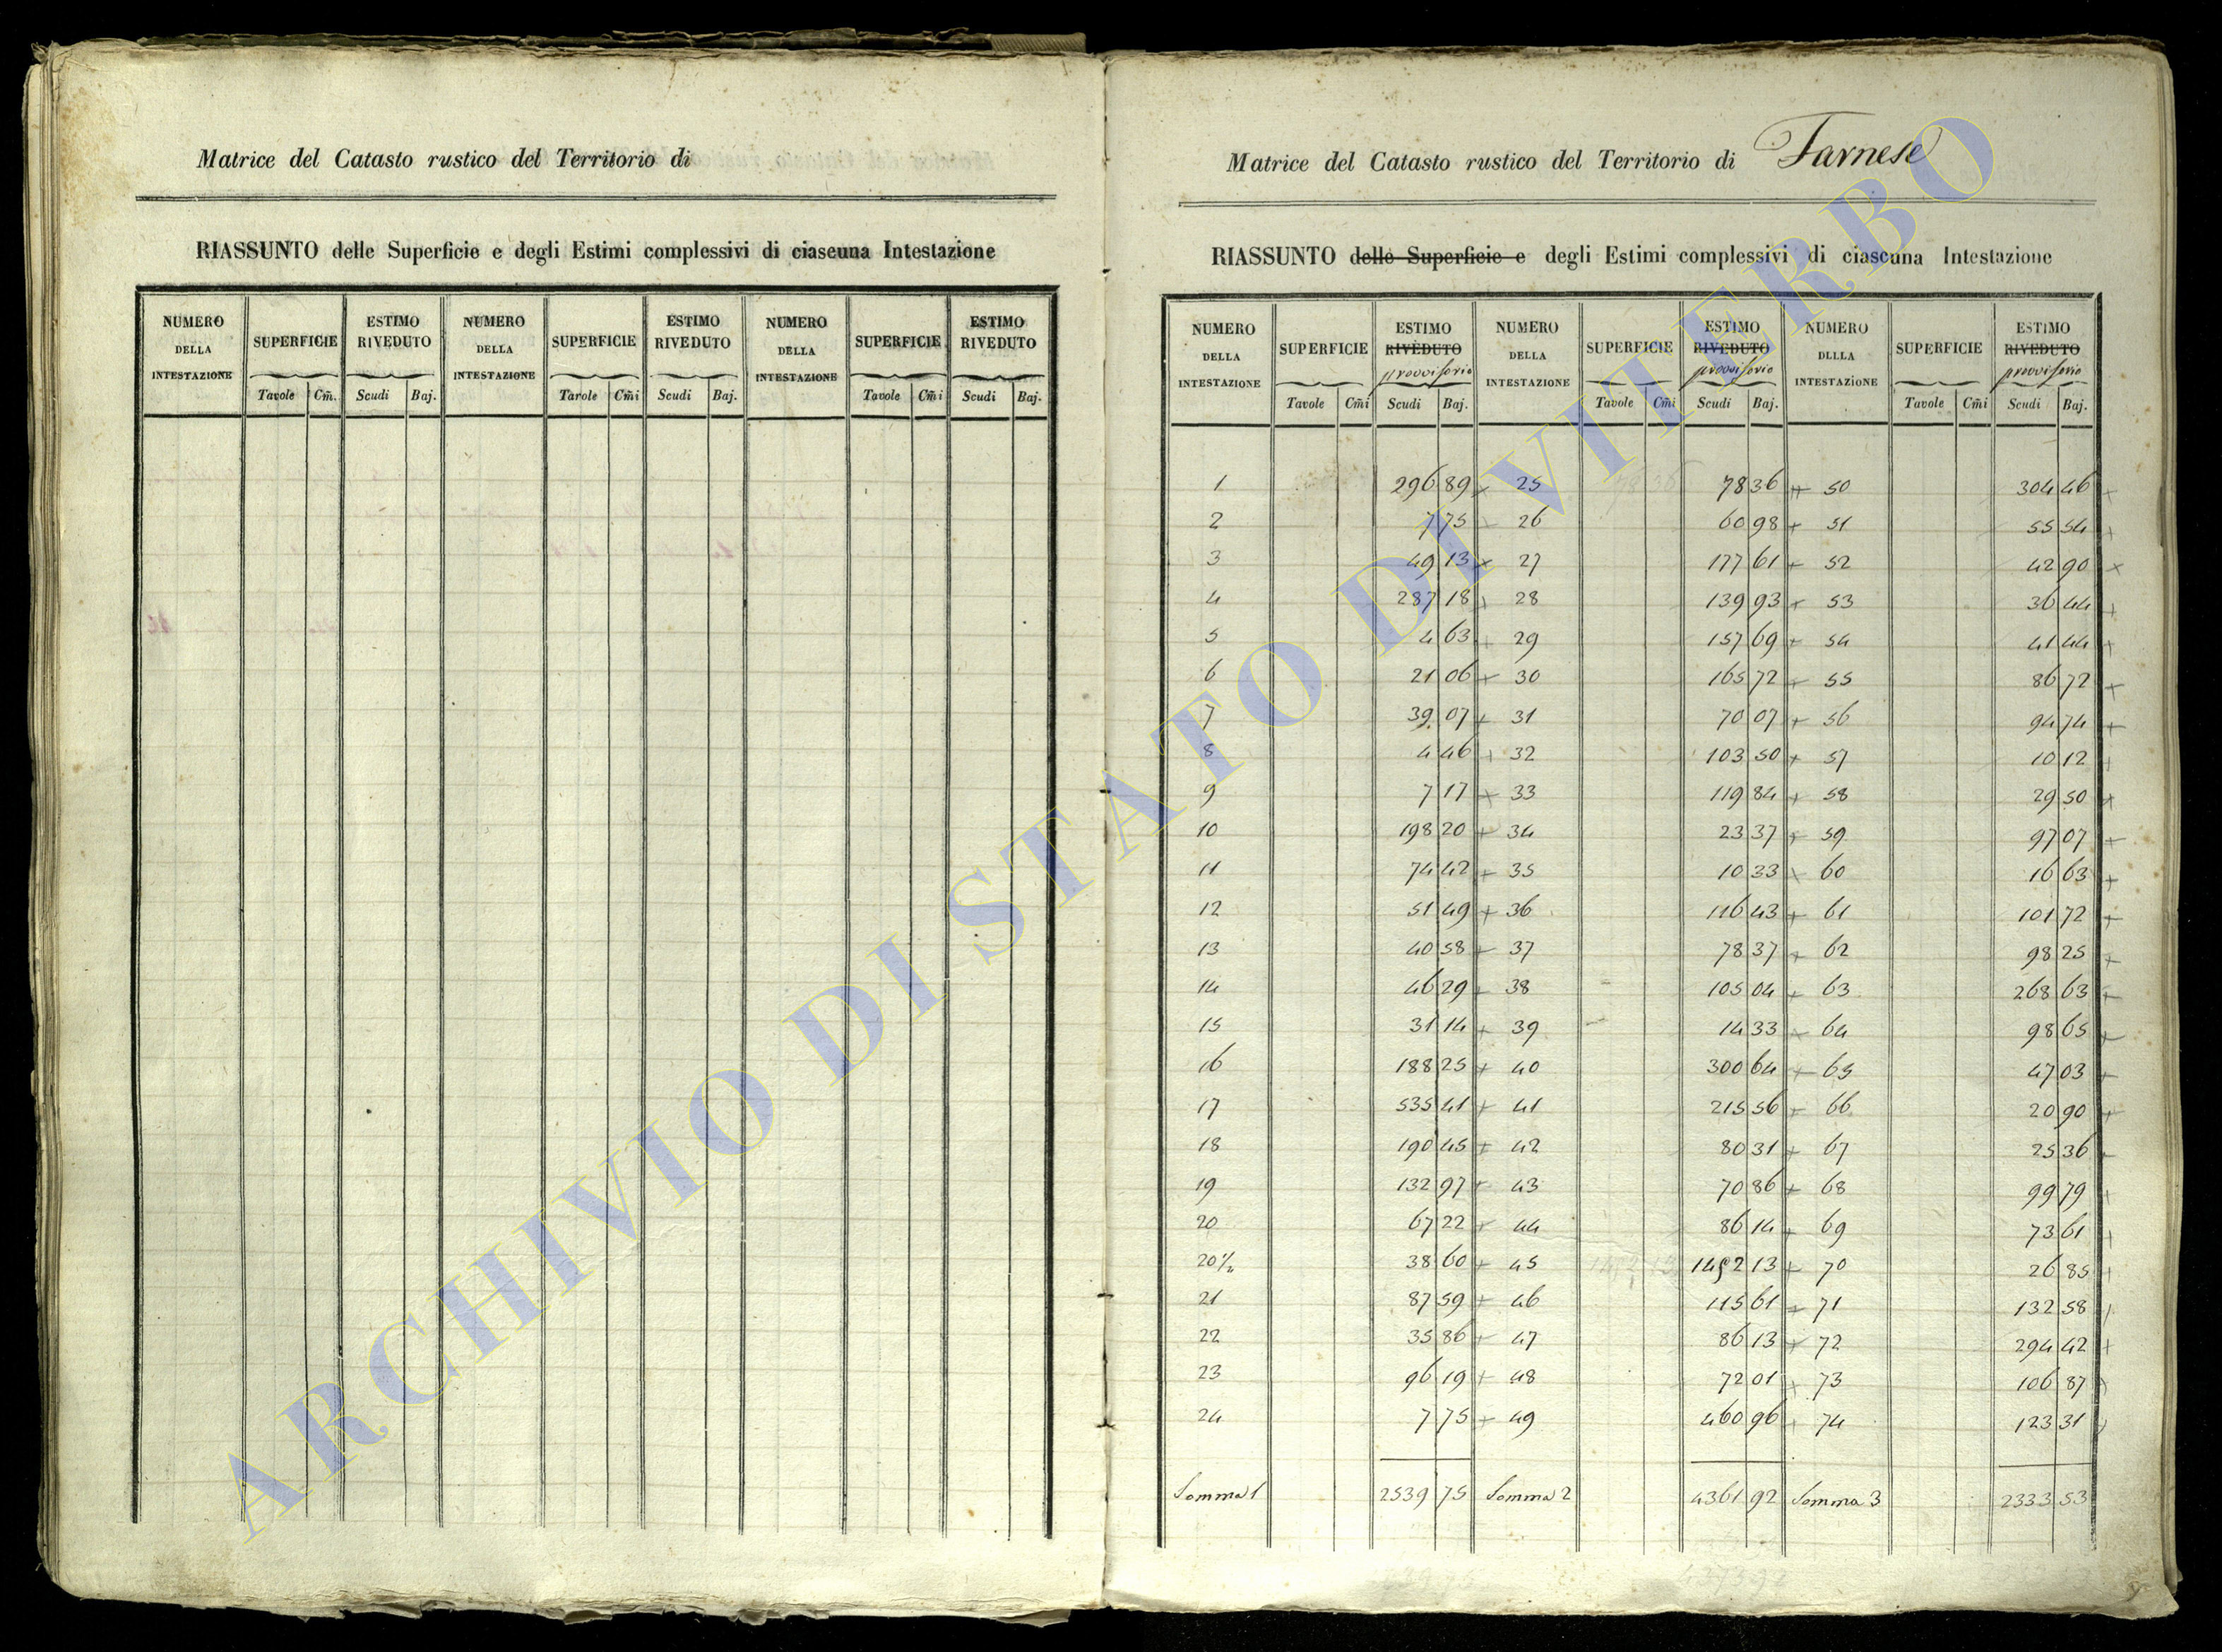 Matrice del Catasto rustico del Territorio di
RIASSUNTO delle Superficie e degli Estimi complessivi di ciascuna Intestazione
NUMERO DELLA INTESTAZIONE SUPERFICIE ESTIMO RIVEDUTO NUMERO DELLA INTESTAZIONE SUPERFICIE ESTIMO RIVEDUTO NUMERO DELLA INTESTAZIONE SUPERFICIE ESTIMO RIVEDUTO
Tavole Cm̃. Scudi Baj. Tavole Cm̃i Scudi Baj. Tavole Cm̃i Scudi Baj.
Matrice del Catasto rustico del Territorio di Farnese
RIASSUNTO delle Superficie e degli Estimi complessivi di ciascuna Intestazione
NUMERO DELLA INTESTAZIONE SUPERFICIE ESTIMO RIVEDUTO provvisorio NUMERO DELLA INTESTAZIONE SUPERFICIE ESTIMO RIVEDUTO provvisorio NUMERO DLLLA INTESTAZIONE SUPERFICIE ESTIMO RIVEDUTO provvisorio
Tavole Cm̃i Scudi Baj. Tavole Cm̃i Scudi Baj. Tavole Cm̃i Scudi Baj.
1 296 89 + 25 78 36 + 50 304 46 +
2 7 75 + 26 60 98 + 51 55 54 +
3 49 13 + 27 177 61 + 52 42 90 +
4 287 18 + 28 139 93 + 53 36 44 +
5 4 63 + 29 157 69 + 54 41 44 +
6 21 06 + 30 165 72 + 55 86 72 +
7 39 07 + 31 70 07 + 56 94 74 +
8 4 46 + 32 103 50 + 57 10 12 +
9 7 17 + 33 119 84 + 58 29 50 +
10 198 20 + 34 23 37 + 59 97 07 +
11 74 42 + 35 10 33 + 60 16 63 +
12 51 49 + 36 116 43 + 61 101 72 +
13 40 58 + 37 78 37 + 62 98 25 +
14 46 29 + 38 105 04 + 63 268 63 +
15 31 14 + 39 14 33 + 64 98 65 +
16 188 25 + 40 300 64 + 65 47 03 +
17 535 41 + 41 215 56 + 66 20 90 +
18 190 45 + 42 80 31 + 67 25 36 +
19 132 97 + 43 70 86 + 68 99 79 +
20 67 22 + 44 86 14 + 69 73 61 +
20½ 38 60 + 45 1452 13 + 70 26 85 +
21 87 59 + 46 115 61 + 71 132 58 +
22 35 86 + 47 86 13 + 72 294 42 +
23 96 19 + 48 72 01 + 73 106 87 +
24 7 75 + 49 460 96 + 74 123 31 +
Somma 1 2539 75 Somma 2 4361 92 Somma 3 2333 53
ARCHIVIO DI STATO DI VITERBO